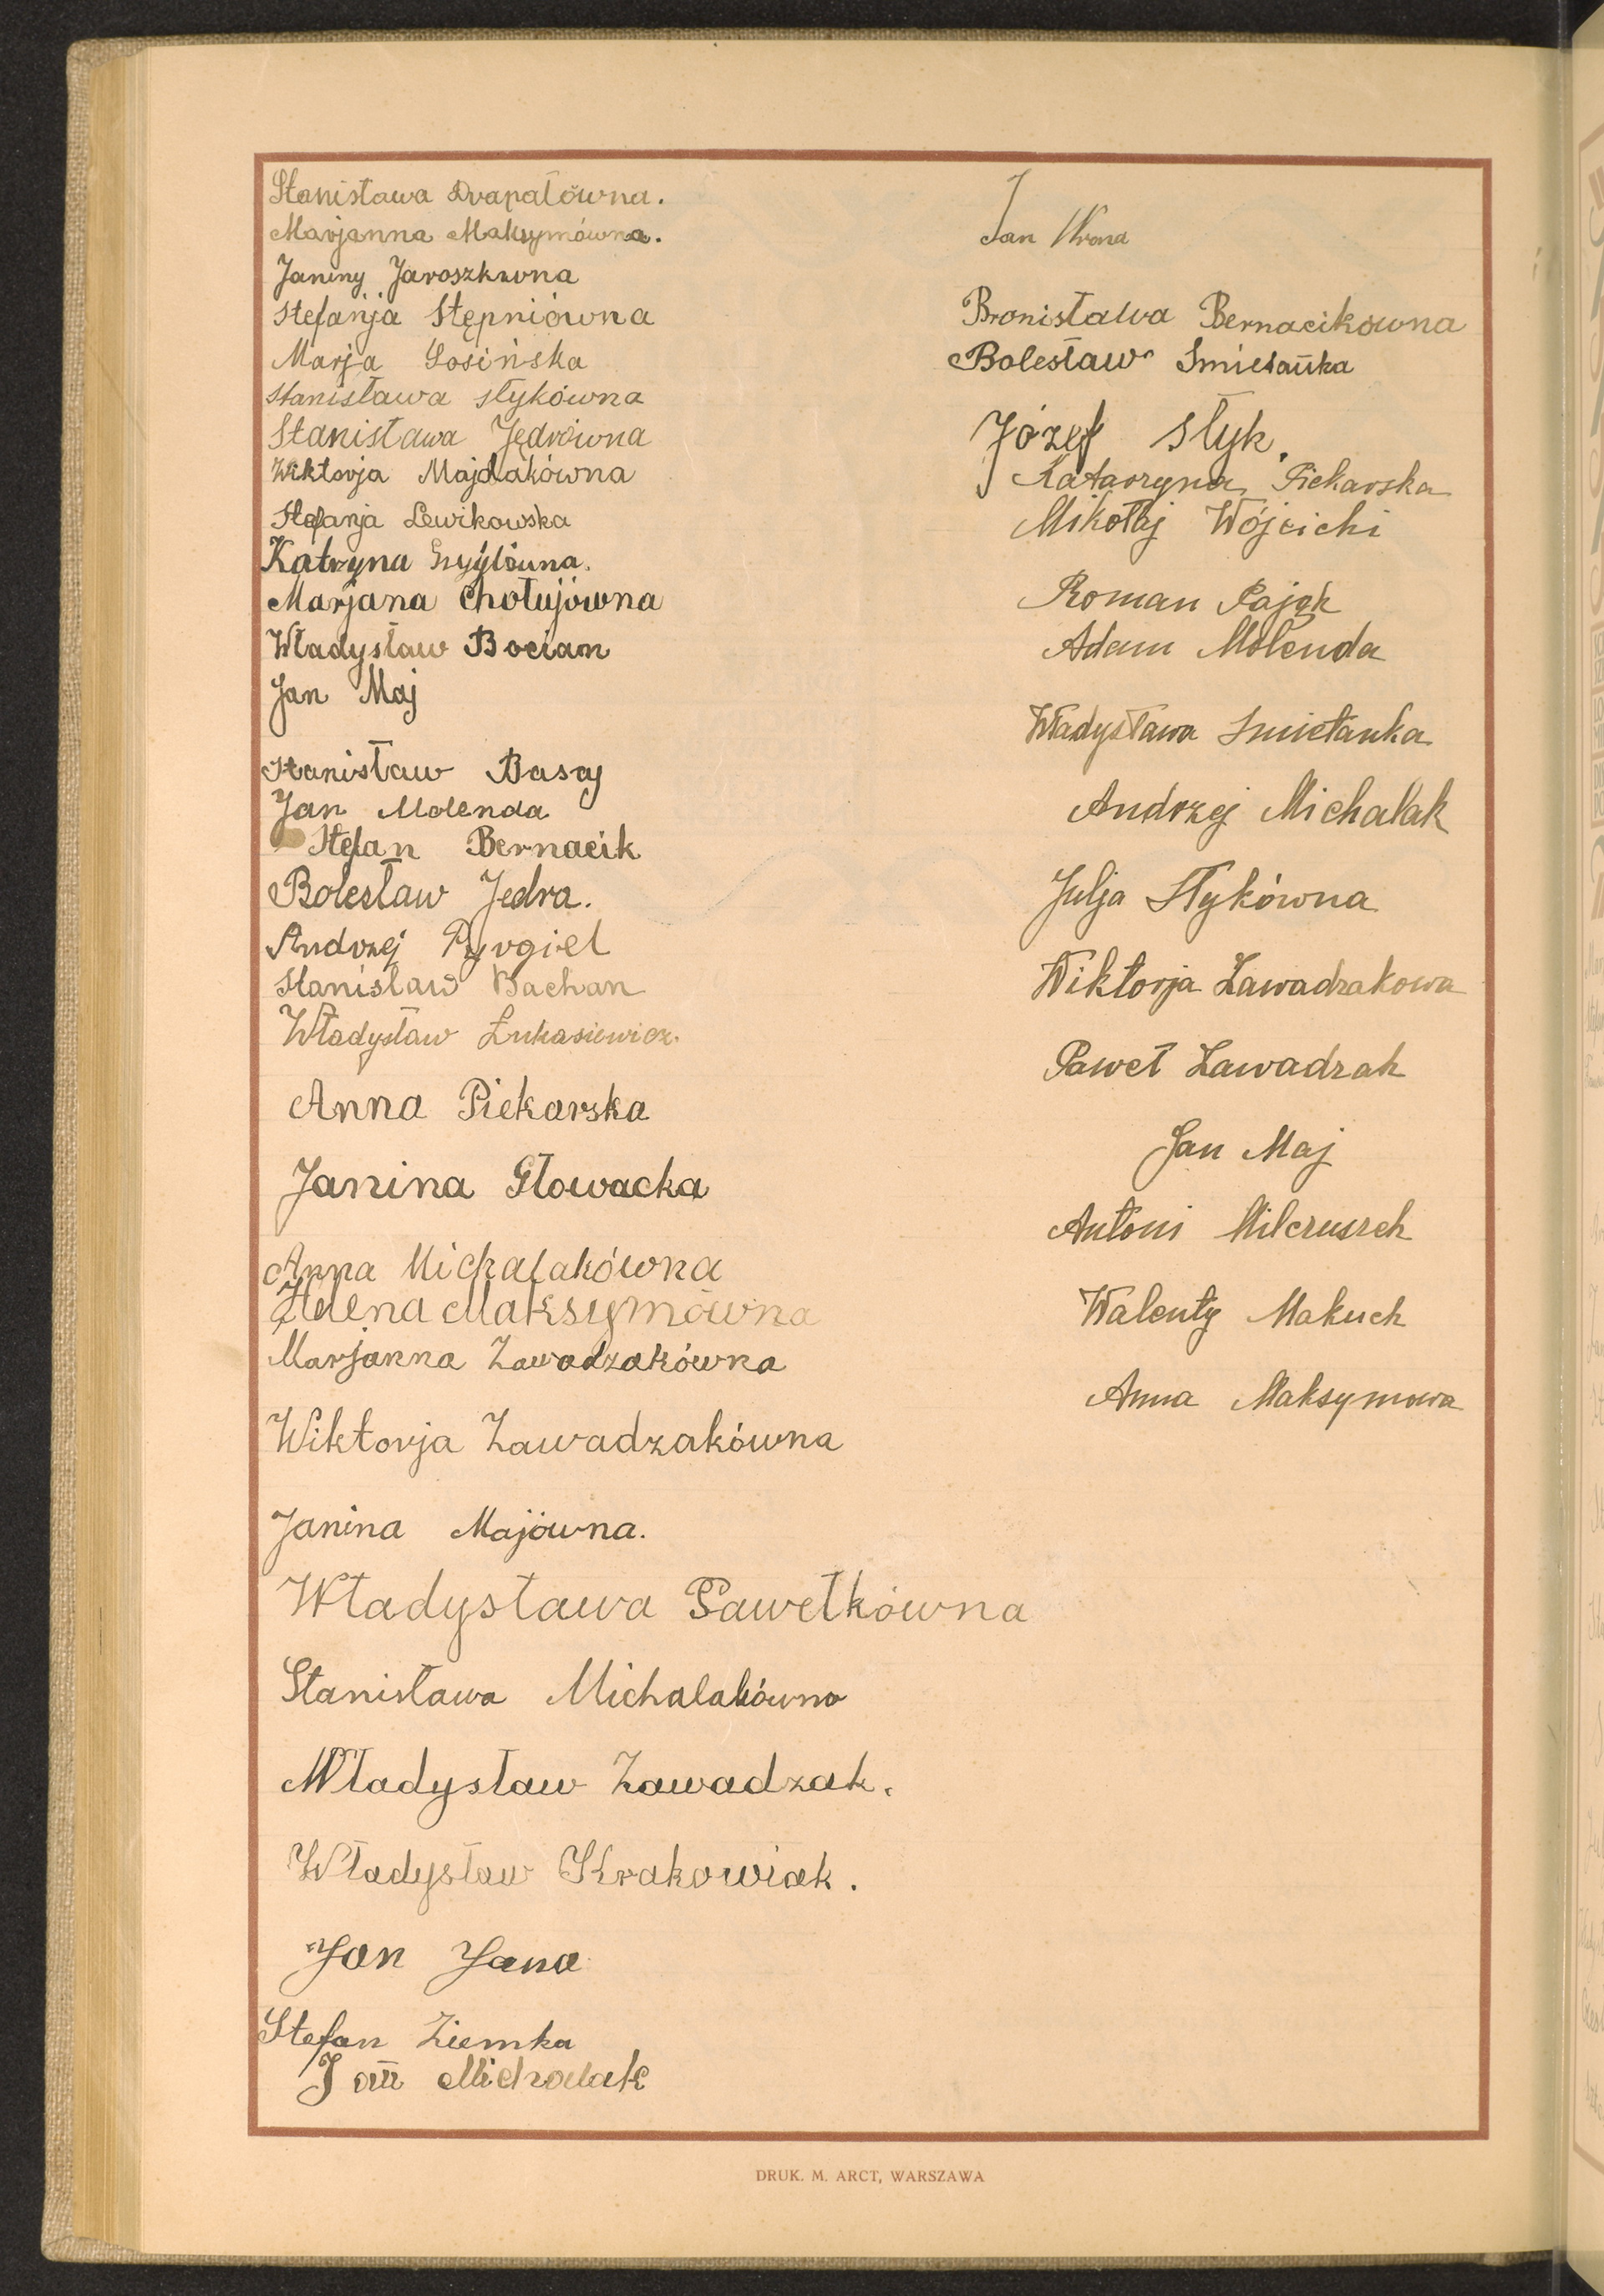 Stanisława Drapałówna.
Marjanna Maksymówna.
Janiny Jaroszkówna
Stefanja Stępniówna
Marja Łosińska
Stanisława Stykówna
Stanisława Jędrówna
Wiktorja Majdakówna
Stefanja Lewikowska
Katryna
Marjana Chołujówna
Władysław Bocian
Jan Maj
Stanisław Basaj
Jan Molenda
Stefan Bernacik
Bolesław Jedra.
Andrzej Pyrgiel
Stanisław Bachan
Władysław Łukasiewicz.
Anna Piekarska
Janina Głowacka
Anna Michalakówna
Helena Maksymówna
Marjanna Zawadzakówna
Wiktorja Zawadzakówna
Janina Majówna.
Władysława Pawełkówna
Stanisława Michalakówna
Władysław Zawadzak.
Władysław Krakowiak.
Jan Jana
Stefan Ziemka
Jan Michalak
Jan Wrona
Bronisława Bernacikówna
Bolesław Smietanka
Józef Styk.
Katarzyna Piekarska
Mikołaj Wójcicki
Roman Pająk
Adam Molenda
Władysława Smietanka
Andrzej Michalak
Julja Stykówna
Wiktorja Zawadzakowa
Paweł Zawadzak
Jan Maj
Antoni Milczuszek
Walenty Makuch
Anna Maksymowa
DRUK. M. ARCT, WARSZAWA